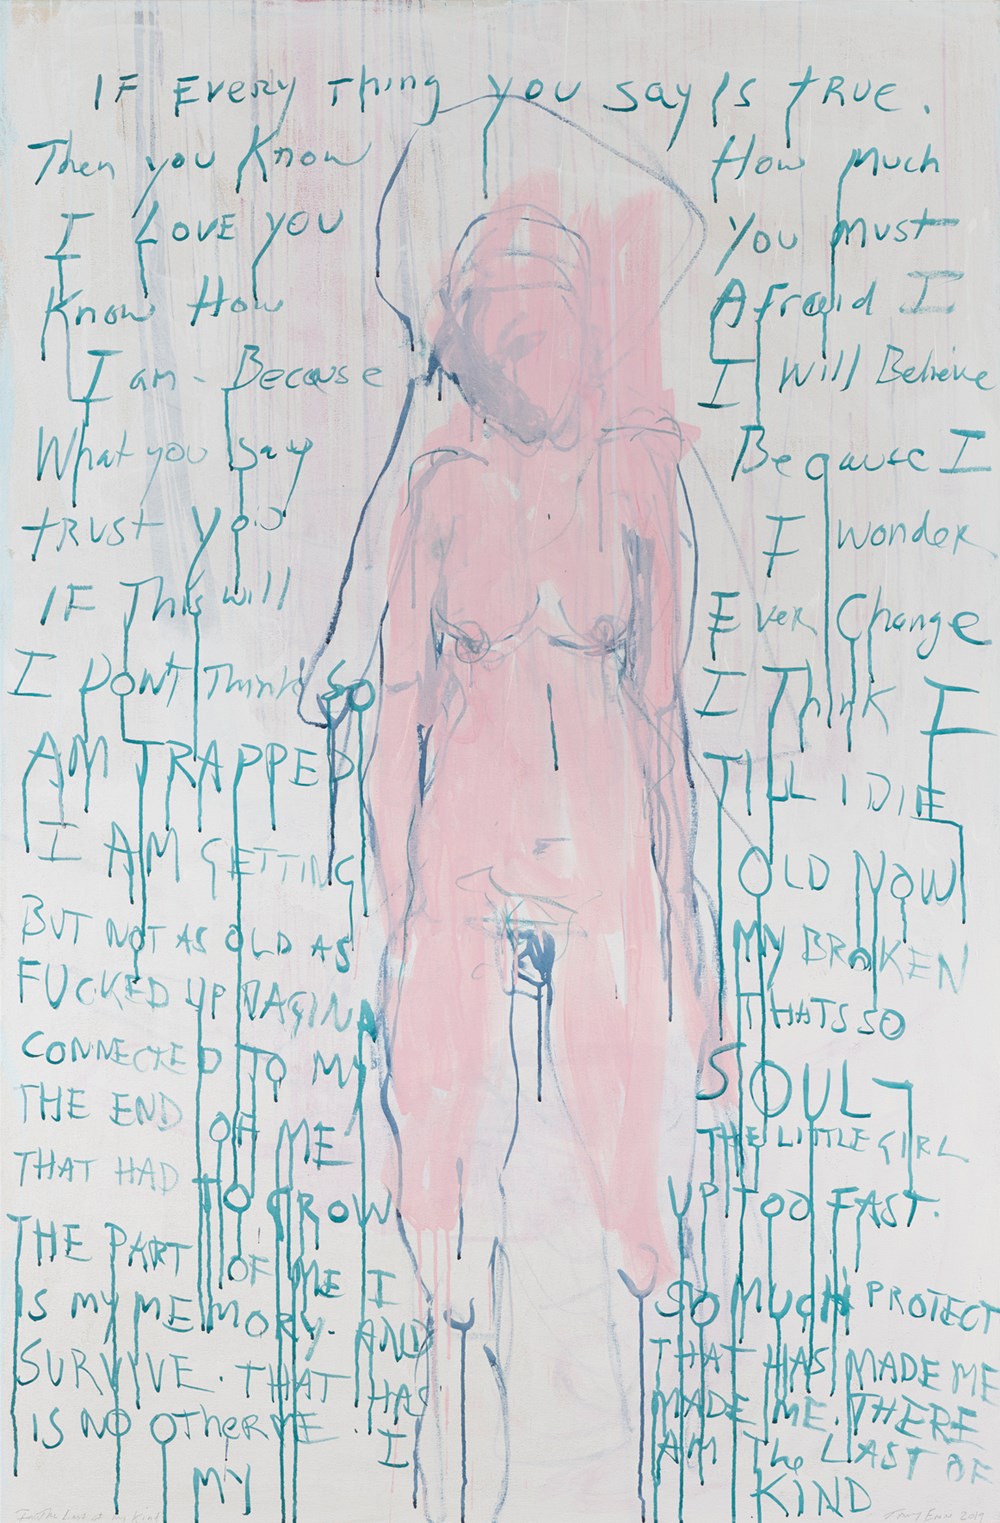 IF Every Thing you say Is tRUE.
Then you Know How Much
I LOVE YOU You Must
Know How Afraid I
I am - Because I Will Believe
What you say Because I
tRUST you I wonder
IF This will Ever Change
I DON'T Think So I Think I
AM TRAPPED TILL I DIE
I AM GETTING OLD NOW
BUT NOT AS OLD AS MY BROKEN
FUCKED UP VAGINA THATS SO
CONNECTED TO MY SOUL -
THE END OF ME THE LITTLE GIRL
THAT HAD TO GROW UP TOO FAST.
THE PART OF ME I SO MUCH PROTECT
IS MY MEMORY. AND THAT HAS MADE ME
SURVIVE. THAT HAS MADE ME. THERE
IS NO OTHER ME. I AM The LAST OF
MY KIND
The Last of my Kind Tracey Emin 2019